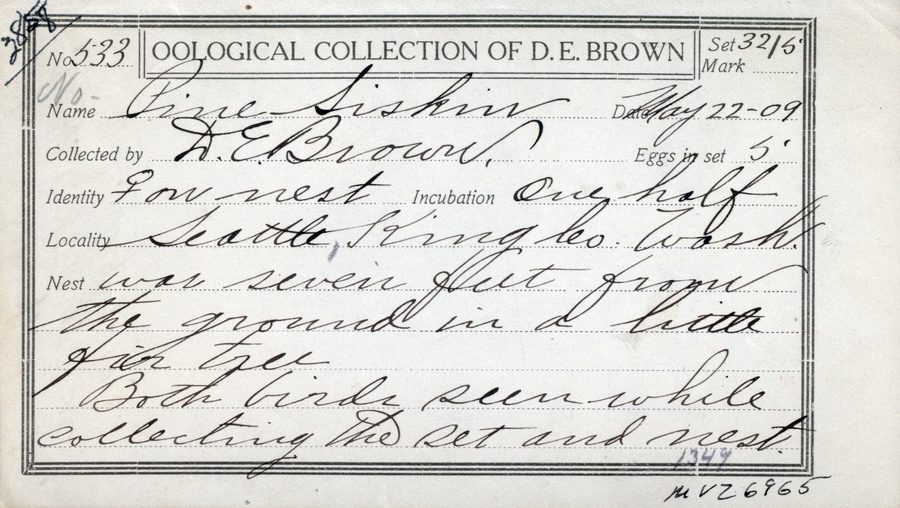 3858
No. 533 OOLOGICAL COLLECTION OF D. E. BROWN Set Mark 32/5
No-
Name Pine Siskin Date May 22-09
Collected by D. E. Brown. Eggs in set 5
Identity ♀ on nest Incubation One half
Locality Seattle, King Co. Wash.
Nest was seven feet from
the ground in a little
fir tree
Both birds seen while
collecting the set and nest.
1349
MVZ 6965